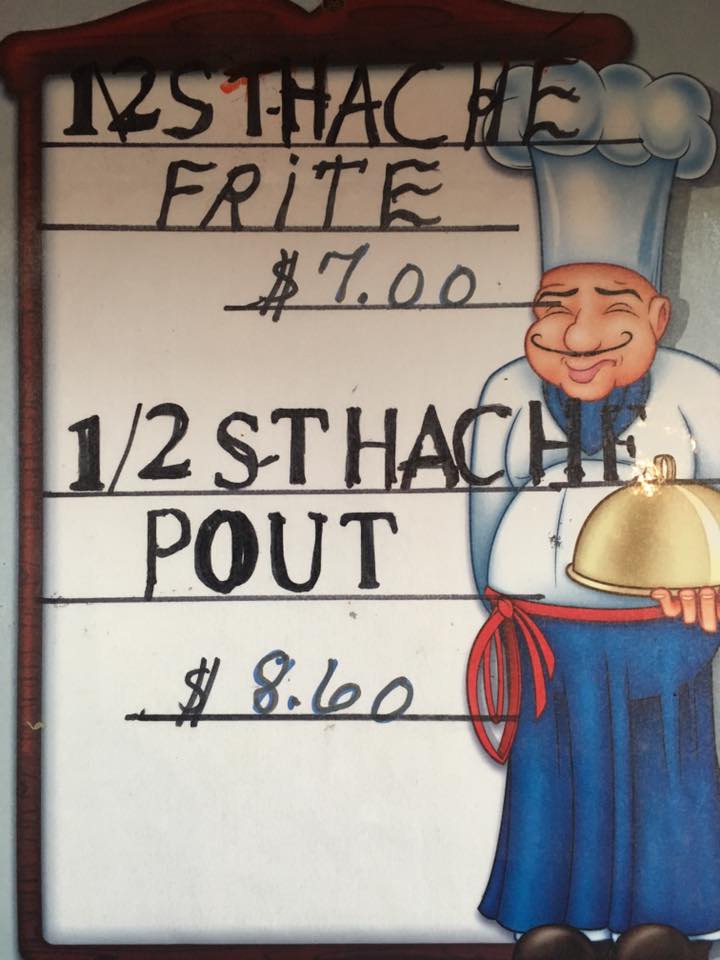 1/2 S-T HACHE
FRiTE
$ 7.00
1/2 S-T HACHE
POUT
$ 8.60